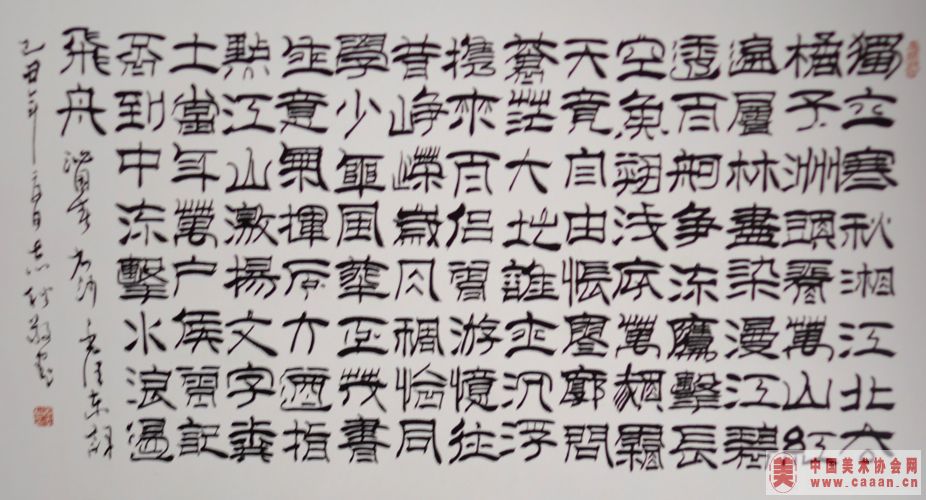 獨立寒秋湘江北去
橘子洲頭看萬山紅
遍層林盡染漫江碧
透百舸争流鷹擊長
空魚翔浅底萬類霜
天竟自由悵寥廓問
蒼茫大地誰主沉浮
携來百侣曾游憶往
昔崢嶸歲月稠恰同
學少年風華正茂書
生意氣揮斥方遒指
點江山激揚文字糞
土當年萬户侯曾記
否到中流擊水浪遏
飛舟 沁園春 長沙 毛澤東詞
乙丑年
中国美术协会网
www.caaan.cn